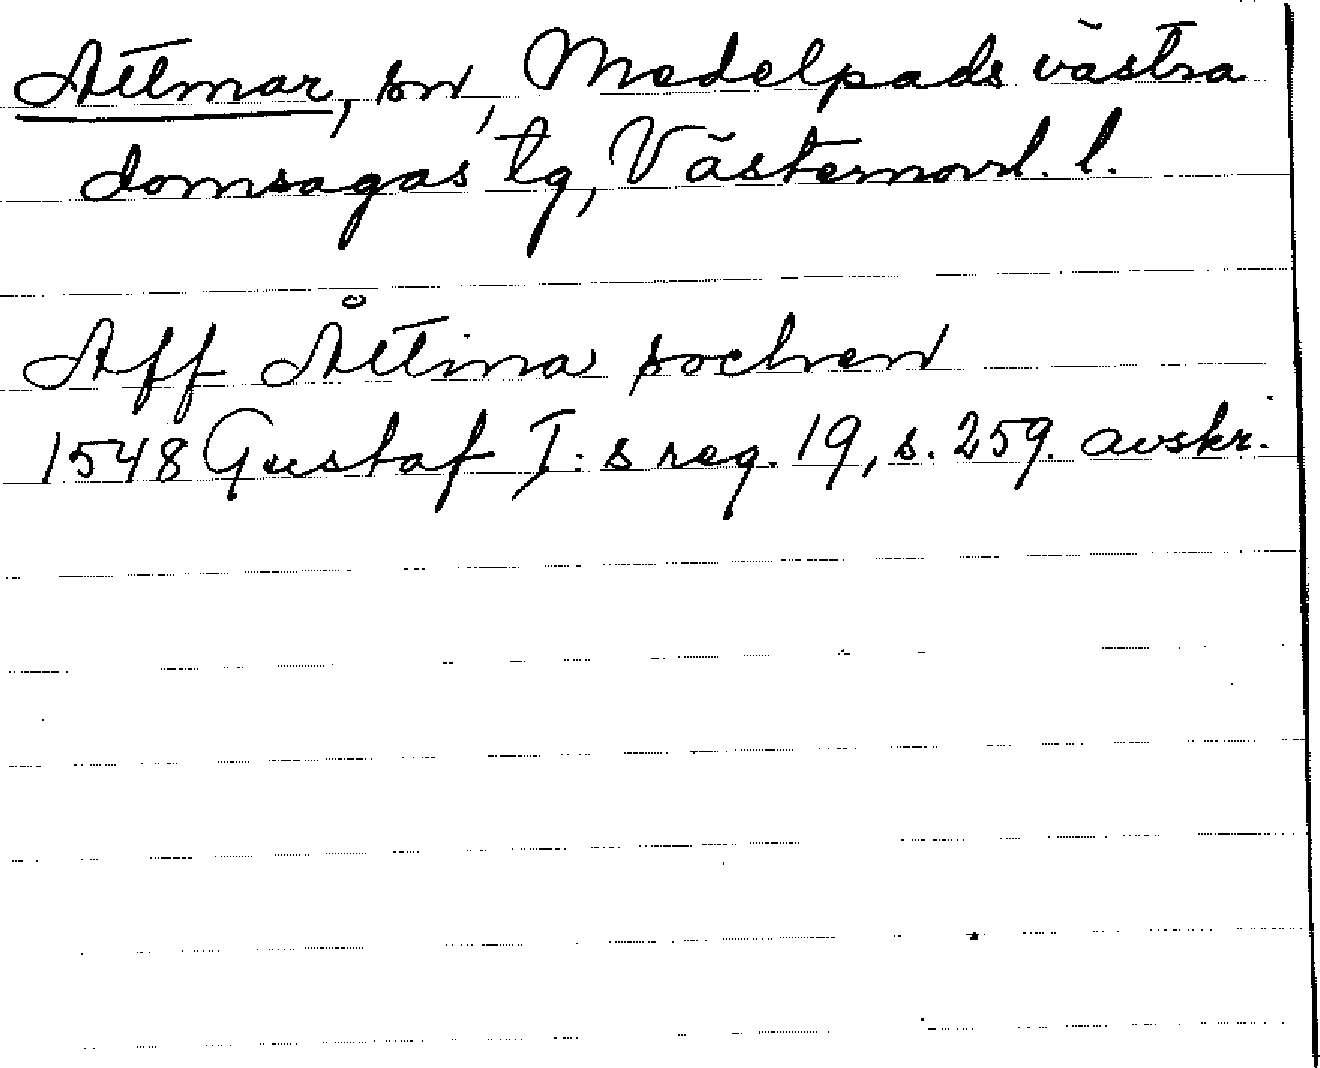 Attmar, sn, Medelpads västra
domsagas tg, Västernorrl. l.
Aff Åttina sochen
1548 Gustaf I:s reg. 19, s. 259. avskr.